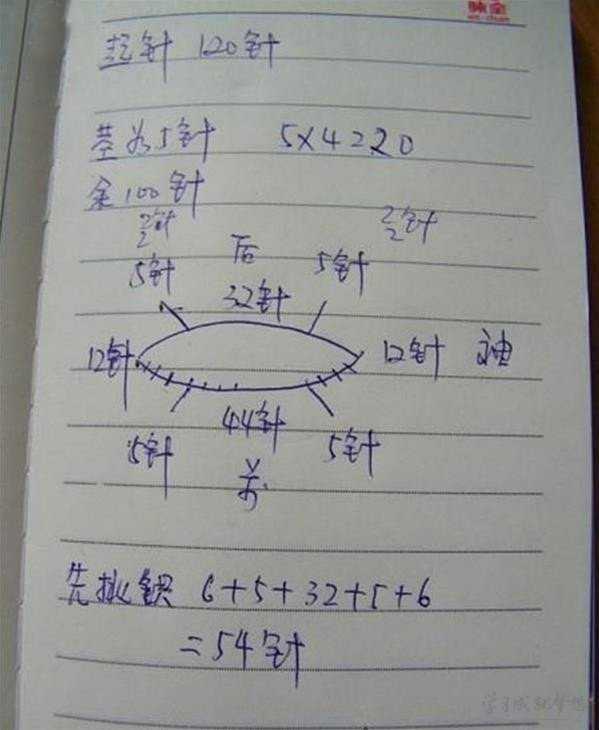 味全
wei-chuan
起针 120针
茎为5针 5×4=20
余100针
2针
2
2针
2
后
5针
5针
32针
12针
12针 袖
44针
5针
5针
前
先挑织 6+5+32+5+6
=54针